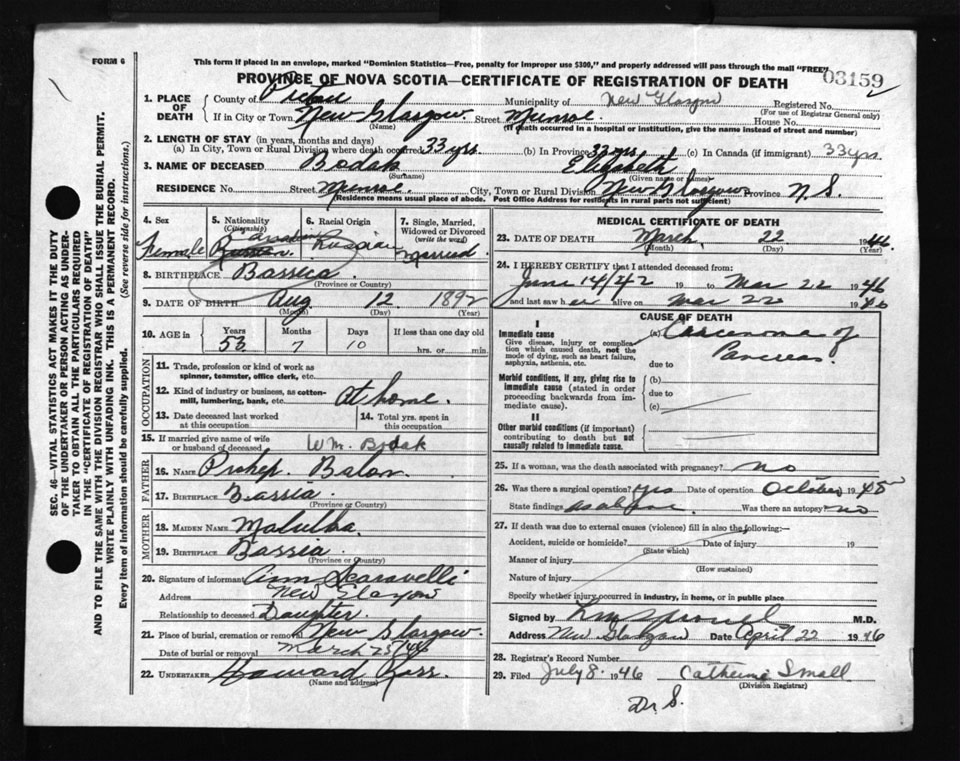 FORM 6
This form if placed in an envelope, marked "Dominion Statistics—Free, penalty for improper use $300," and properly addressed will pass through the mail "FREE"
PROVINCE OF NOVA SCOTIA—CERTIFICATE OF REGISTRATION OF DEATH
03159
1. PLACE OF DEATH
County of Pictou Municipality of New Glasgow Registered No.
(For use of Registrar General only)
If in City, Town New Glasgow Street Munroe House No.
(Name) (If death occurred in a hospital or institution, give the name instead of street and number)
2. LENGTH OF STAY (in years, months and days)
(a) In City, Town or Rural Division where death occurred 33 yrs. (b) In Province 33 yrs (c) In Canada (if immigrant) 33 yrs.
3. NAME OF DECEASED Bodak Elizabeth
(Surname) (Given name or names)
RESIDENCE No. Street Munroe. City, Town or Rural Division New Glasgow Province N.S.
(Residence means usual place of abode. Post Office Address for residents in rural parts not sufficient)
4. Sex
Female
5. Nationality
(Citizenship)
Canadian
Russian
6. Racial Origin
Russian
7. Single, Married, Widowed or Divorced
(write the word)
Married
8. BIRTHPLACE
(Province or Country)
9. DATE OF BIRTH Aug 12 1892
(Month) (Day) (Year)
10. AGE in Years Months Days If less than one day old
53 7 10 hrs. or min.
OCCUPATION
11. Trade, profession or kind of work as spinner, teamster, office clerk, etc.
12. Kind of industry or business, as cotton-mill, lumbering, bank, etc. At home.
13. Date deceased last worked at this occupation
14. Total yrs. spent in this occupation
15. If married give name of wife or husband of deceased Wm. Bodak
FATHER
16. NAME Prokep Balon
17. BIRTHPLACE
(Province or Country)
MOTHER
18. MAIDEN NAME
19. BIRTHPLACE
(Province or Country)
20. Signature of informant Ann Scaravelli
Address New Glasgow
Relationship to deceased Daughter
21. Place of burial, cremation or removal New Glasgow.
Date of burial or removal March 25/46
22. UNDERTAKER Howard Ross.
(Name and address)
MEDICAL CERTIFICATE OF DEATH
23. DATE OF DEATH March 22 1946
(Month) (Day) (Year)
24. I HEREBY CERTIFY that I attended deceased from:
June 14/42 19 to Mar 22 1946
and last saw her alive on Mar 22 1946
CAUSE OF DEATH
I
Immediate cause
Give disease, injury or complication which caused death, not the mode of dying, such as heart failure, asphyxia, asthenia, etc.
(a) Carcenoma of Pancreas.
due to
Morbid conditions, if any, giving rise to immediate cause (stated in order proceeding backwards from immediate cause).
(b)
due to
(c)
II
Other morbid conditions (if important) contributing to death but not causally related to immediate cause.
25. If a woman, was the death associated with pregnancy? no
26. Was there a surgical operation? yes Date of operation October 1945
State findings as above Was there an autopsy? no
27. If death was due to external causes (violence) fill in also the following:—
Accident, suicide or homicide? Date of injury 19
(State which)
Manner of injury
(How sustained)
Nature of injury
Specify whether injury occurred in industry, in home, or in public place
Signed by M.D.
Address New Glasgow Date April 22 1946
28. Registrar's Record Number
29. Filed July 8. 1946 Catherine Small
(Division Registrar)
Dr S.
SEC. 46—VITAL STATISTICS ACT MAKES IT THE DUTY
OF THE UNDERTAKER OR PERSON ACTING AS UNDER-
TAKER TO OBTAIN ALL THE PARTICULARS REQUIRED
IN THE "CERTIFICATE OF REGISTRATION OF DEATH"
AND TO FILE THE SAME WITH THE DIVISION REGISTRAR WHO SHALL ISSUE THE BURIAL PERMIT.
WRITE PLAINLY WITH UNFADING INK. THIS IS A PERMANENT RECORD.
Every item of information should be carefully supplied. (See reverse side for instructions.)